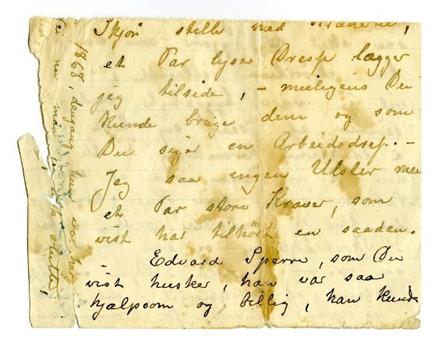 Skjøn stille med
et Par lyse Dresse lægger
jeg tilside, - muligens Du
kunde bruge dem og som
Du siger en Arbeidsdsep. -
Jeg saa ingen Ulster men
et Par store Kraver, som
vist har tilhørt en saadan.
Edvard Sperre, som Du
vist husker, han var saa
hjælpsom og billig, han kunde
1868, dengang hun var